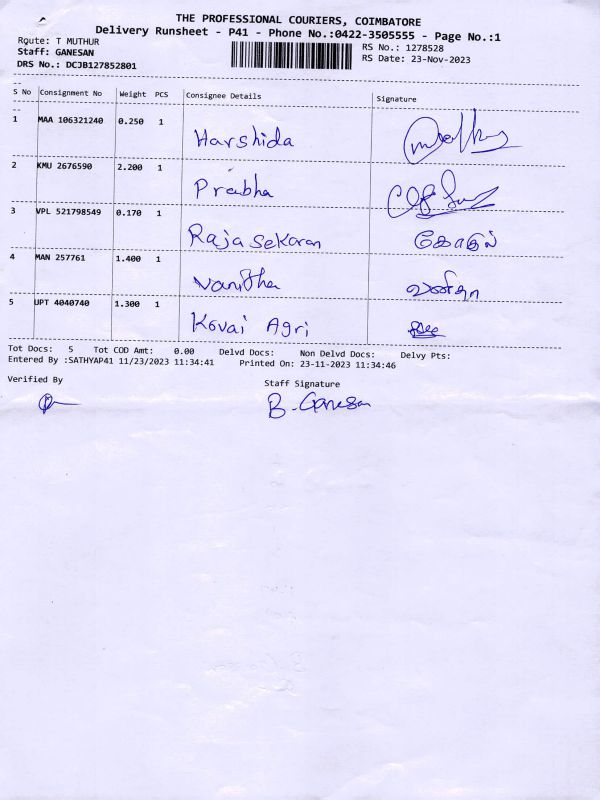 THE PROFESSIONAL COURIERS, COIMBATORE
Delivery Runsheet - P41 - Phone No.:0422-3505555 - Page No.:1
Route: T MUTHUR
Staff: GANESAN
DRS No.: DCJB127852801
RS No.: 1278528
RS Date: 23-Nov-2023
S No Consignment No Weight PCS Consignee Details Signature
1 MAA 106321240 0.250 1 Harshida
2 KMU 2676590 2.200 1 Prabha
3 VPL 521798549 0.170 1 Rajasekaran
4 MAN 257761 1.400 1 Vanitha வனிதா
5 UPT 4040740 1.300 1 Kovai Agri
Tot Docs: 5 Tot COD Amt: 0.00 Delvd Docs: Non Delvd Docs: Delvy Pts:
Entered By :SATHYAP41 11/23/2023 11:34:41 Printed On: 23-11-2023 11:34:46
Verified By
Staff Signature
B. Ganesan